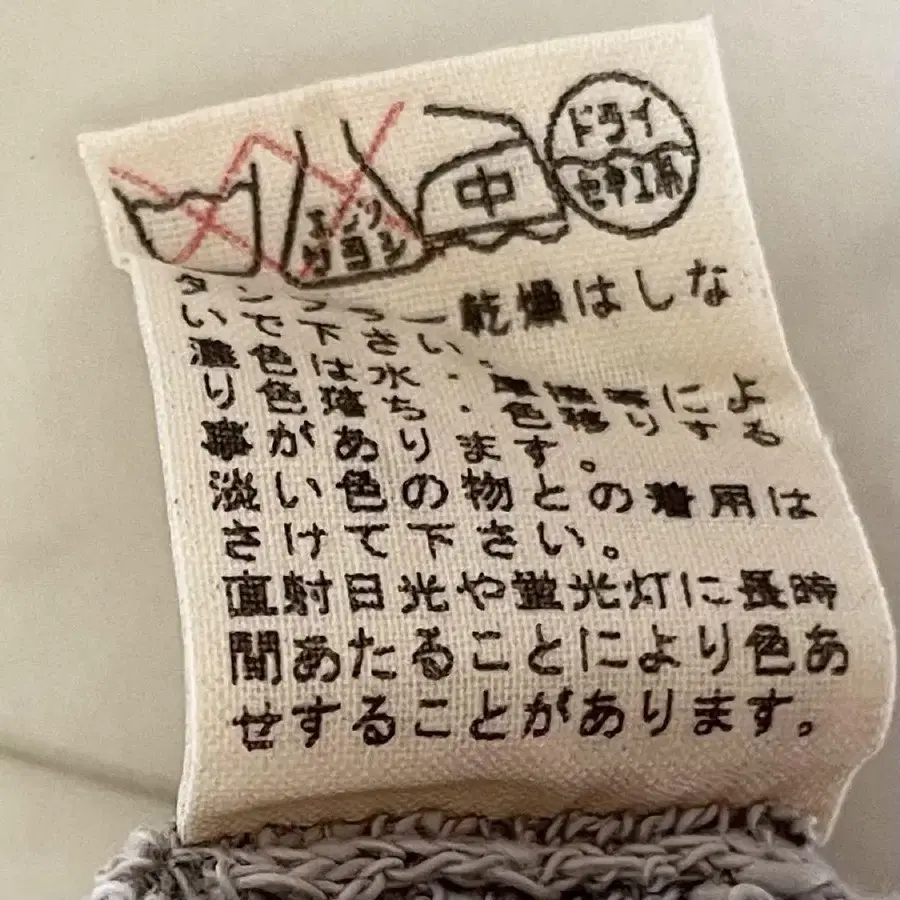 中
ドライ
セキユ系
ー乾燥はしな
いで下さい
濃色は水 によ
り色落ち・色移り
事があります。
淡い色の物との着用は
さけて下さい。
直射日光や蛍光灯に長時
間あたることにより色あ
せすることがあります。